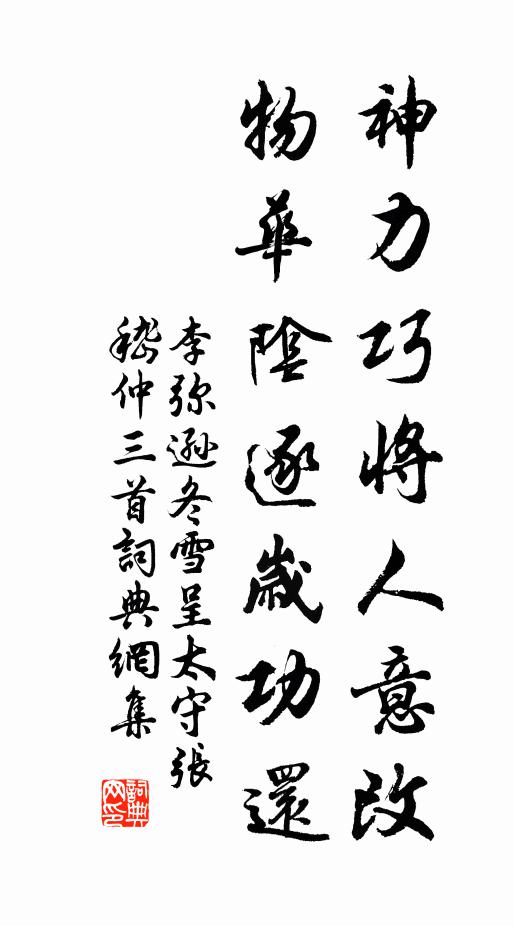 神力巧將人意改
物華陰逐歲功還
李弥遜冬雪呈太守張
嵇仲三首詞典網集
詞典网印